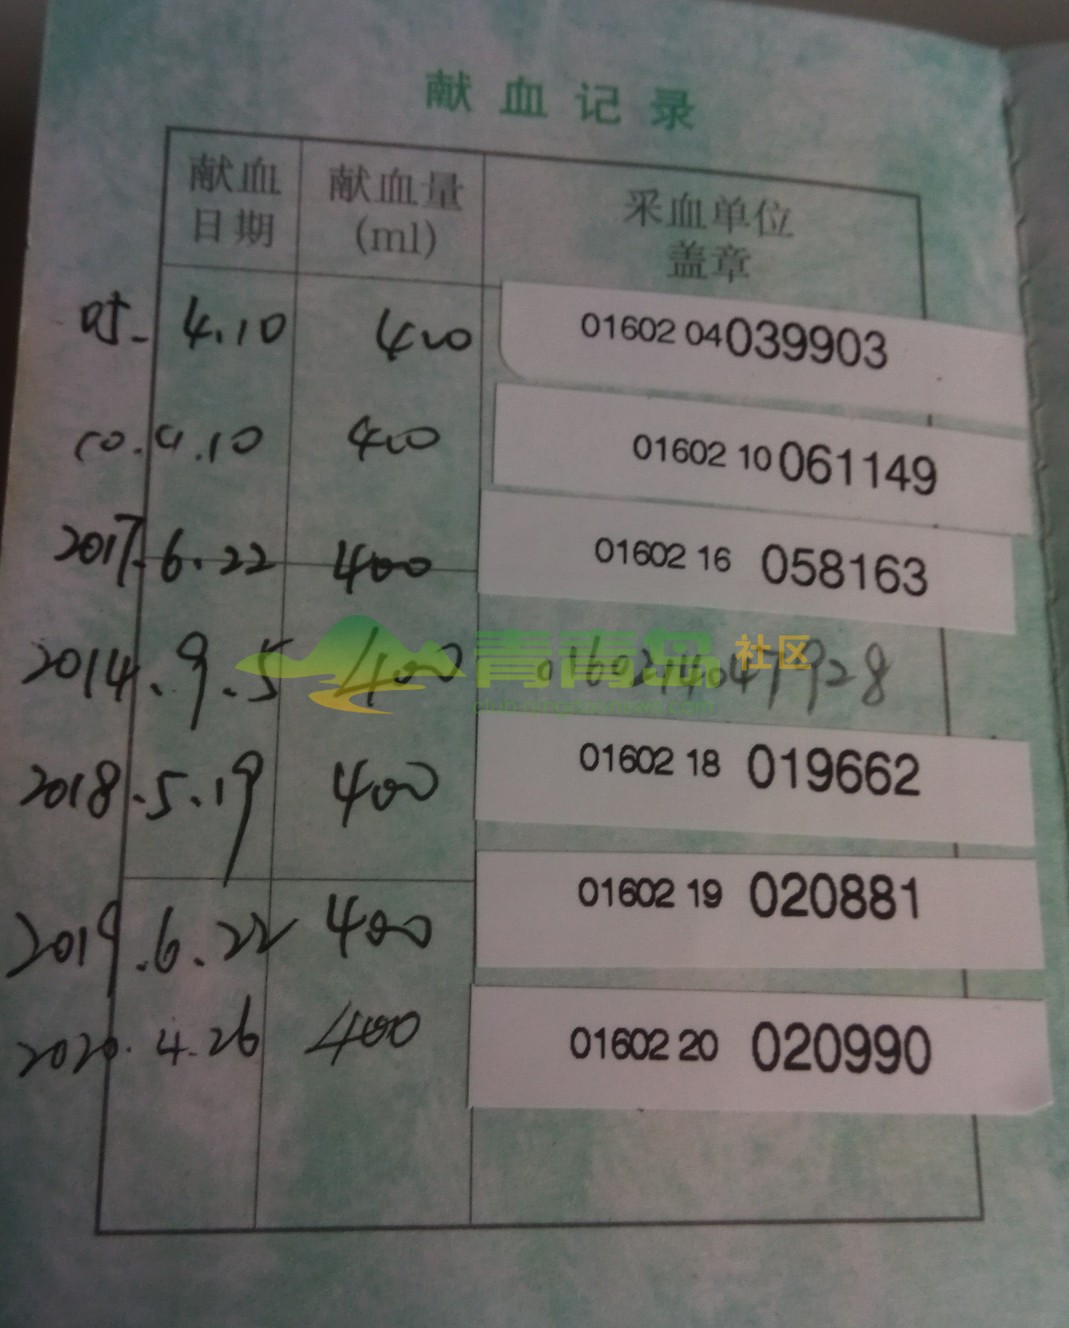 献血记录
献血日期 献血量(ml) 采血单位盖章
05- 4.10 400 01602 04 039903
10.9.10 400 01602 10 061149
2017.6.22 400 01602 16 058163
2014.9.5 400
青青岛 社区
2018.5.19 400 01602 18 019662
2019.6.22 400 01602 19 020881
2020.4.26 400 01602 20 020990